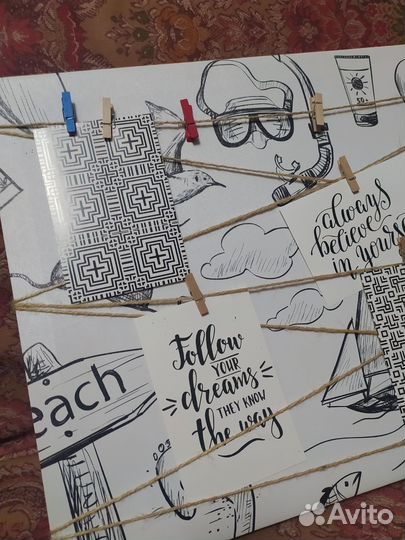 50+
always
believe
in yourse
Follow
YOUR
dreams
THEY KNOW
the way
each
Avito